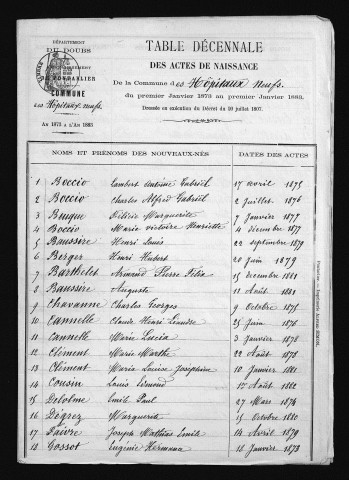 DÉPARTEMENT
DU DOUBS
ARRONDISSEMENT
DE PONTARLIER
COMMUNE
des Hôpitaux neufs
An 1873 à l'An 1883
TABLE DÉCENNALE
DES ACTES DE NAISSANCE
De la Commune des Hôpitaux neufs
du premier Janvier 1873 au premier Janvier 1883.
Dressée en exécution du Décret du 20 juillet 1807.
NOMS ET PRÉNOMS DES NOUVEAUX-NÉS DATES DES ACTES
1 Boccio Lambert Antoine Gabriel 17 avril 1875
2 Boccio Charles Alfred Gabriel 2 juillet 1876
3 Marguerite 7 Janvier 1877
4 Boccio Marie victoire Henriette 4 décembre 1877
5 Baussire Henri Louis 22 septembre 1879
6 Berger Henri Hubert 20 juin 1879
7 Barthelet Armand Pierre Félix 15 décembre 1881
8 Baussire Auguste 11 Août 1881
9 Chavanne Charles Georges 9 Octobre 1875
10 Cannelle Claude Henri Léandre 25 juin 1876
11 Cannelle Marie Lucia 3 janvier 1878
12 Clément Marie Marthe 22 Août 1878
13 Clément Maria Louise Joséphine 10 janvier 1881
14 Cousin Louis Edmond 1er Août 1882
15 Delolme Emile Paul 27 Mars 1874
16 Marguerite 15 Octobre 1880
17 Faivre Joseph Mathias Emile 14 Avril 1879
18 Gossot Eugénie Hermana 18 janvier 1873